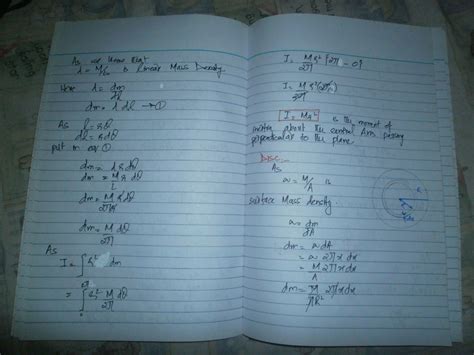 As we know that
λ = M/L is Linear Mass Density.
Here λ = dm/dl
dm = λ dl → ①
As l = rθ
dl = r dθ
put in eq ①
dm = λ r dθ
dm = M/L r dθ
dm = M r dθ / 2πr
dm = M dθ / 2π
As
I = ∫ r² dm
= ∫ r² M/2π dθ
I = Mr²/2π {2π - 0}
I = Mr²(2π)/2π
I = Mr² is the moment of
inertia about the central Axis passing
perpendicular to the plane.
Disc
As
σ = M/A is
surface Mass density.
σ = dm/dA
dm = σ dA
= σ 2πx dx
= M/A 2πx dx
dm = M/πR² 2πx dx